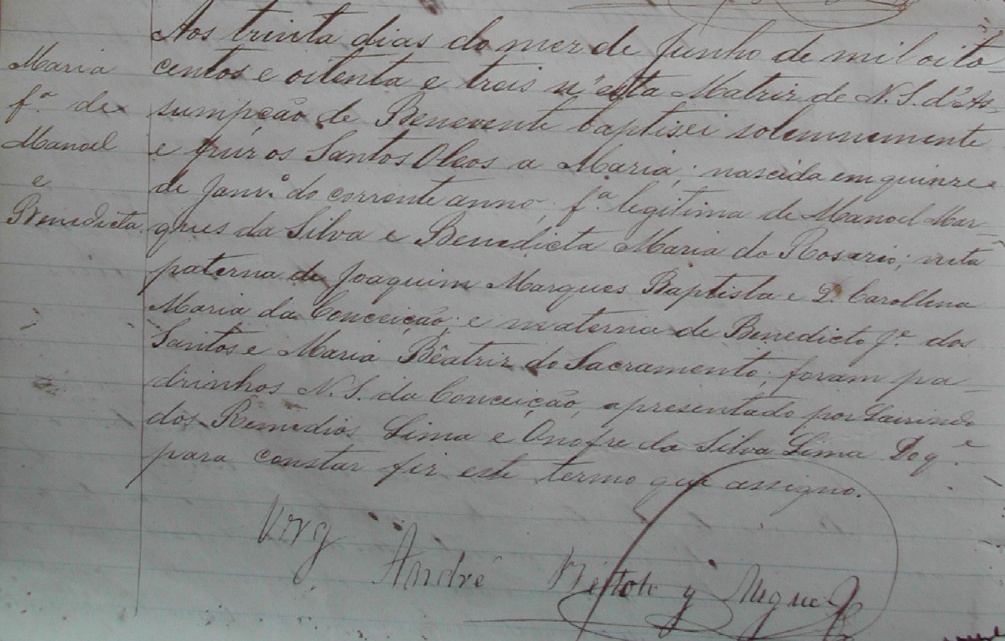 Maria
fª de
Manoel
e
Benedicta
Aos trinta dias do mez de Junho de mil oito
centos e oitenta e tres n'esta Matriz de N. S. d'As
sumpção de Benevente baptisei solemnemente
e puz os Santos Oleos a Maria, nascida em quinze
de Janrº do corrente anno, fª legitima de Manoel Mar-
ques da Silva e Benedicta Maria do Rosario; neta
paterna de Joaquim Marques Baptista e D. Carollina
Maria da Conceição, e materna de Benedicto Jº dos
Santos e Maria Beatriz do Sacramento, foram pa-
drinhos N. S. da Conceição, apresentado por
dos Remedios Lima e Onofre da Silva Lima Do q. e
para constar fiz este termo que assigno.
Virg
André y